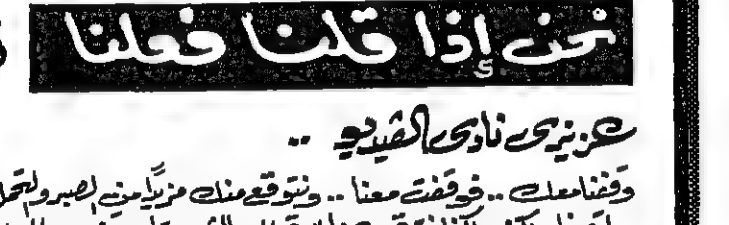 نحن إذا قلنا فعلنا
عزيزي نادي الفيديو ..
وقفنا معك .. فوقفت معنا .. ونتوقع منك مزيدًا من الصبر والتحمل